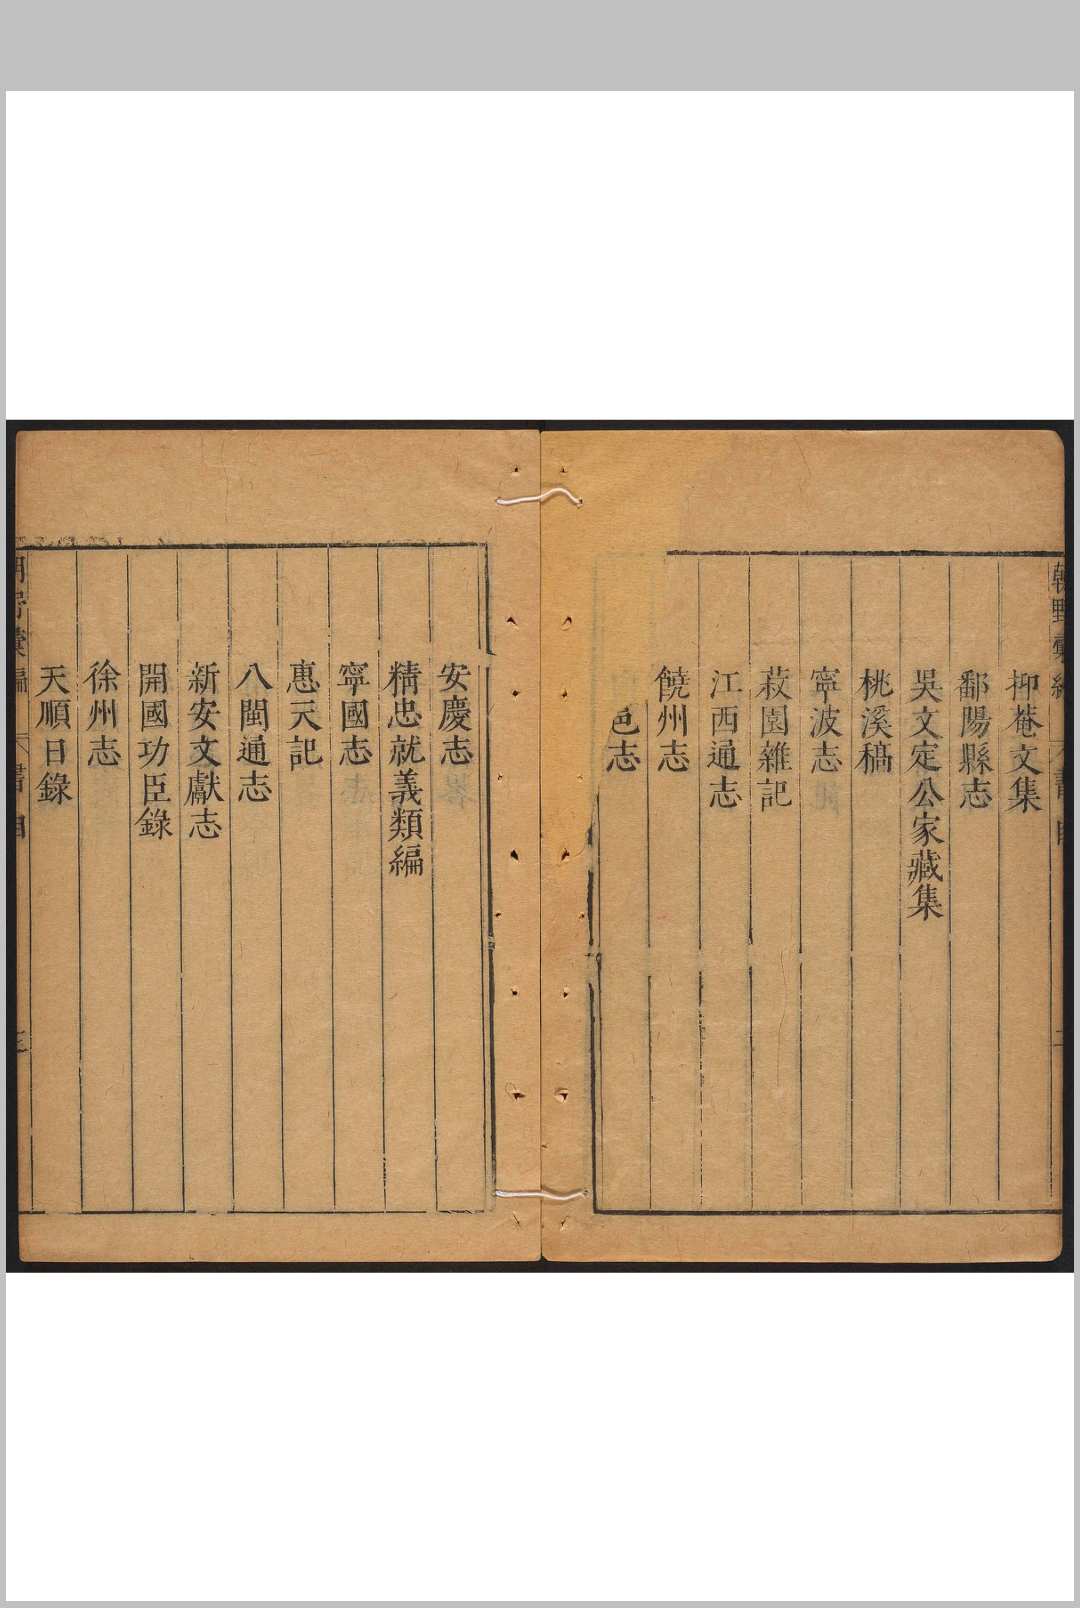 抑菴文集
鄱陽縣志
吳文定公家藏集
桃溪稿
寧波志
菽園雜記
江西通志
饒州志
邑志
安慶志
精忠就義類編
寧國志
惠天記
八閩通志
新安文獻志
開國功臣錄
徐州志
天順日錄